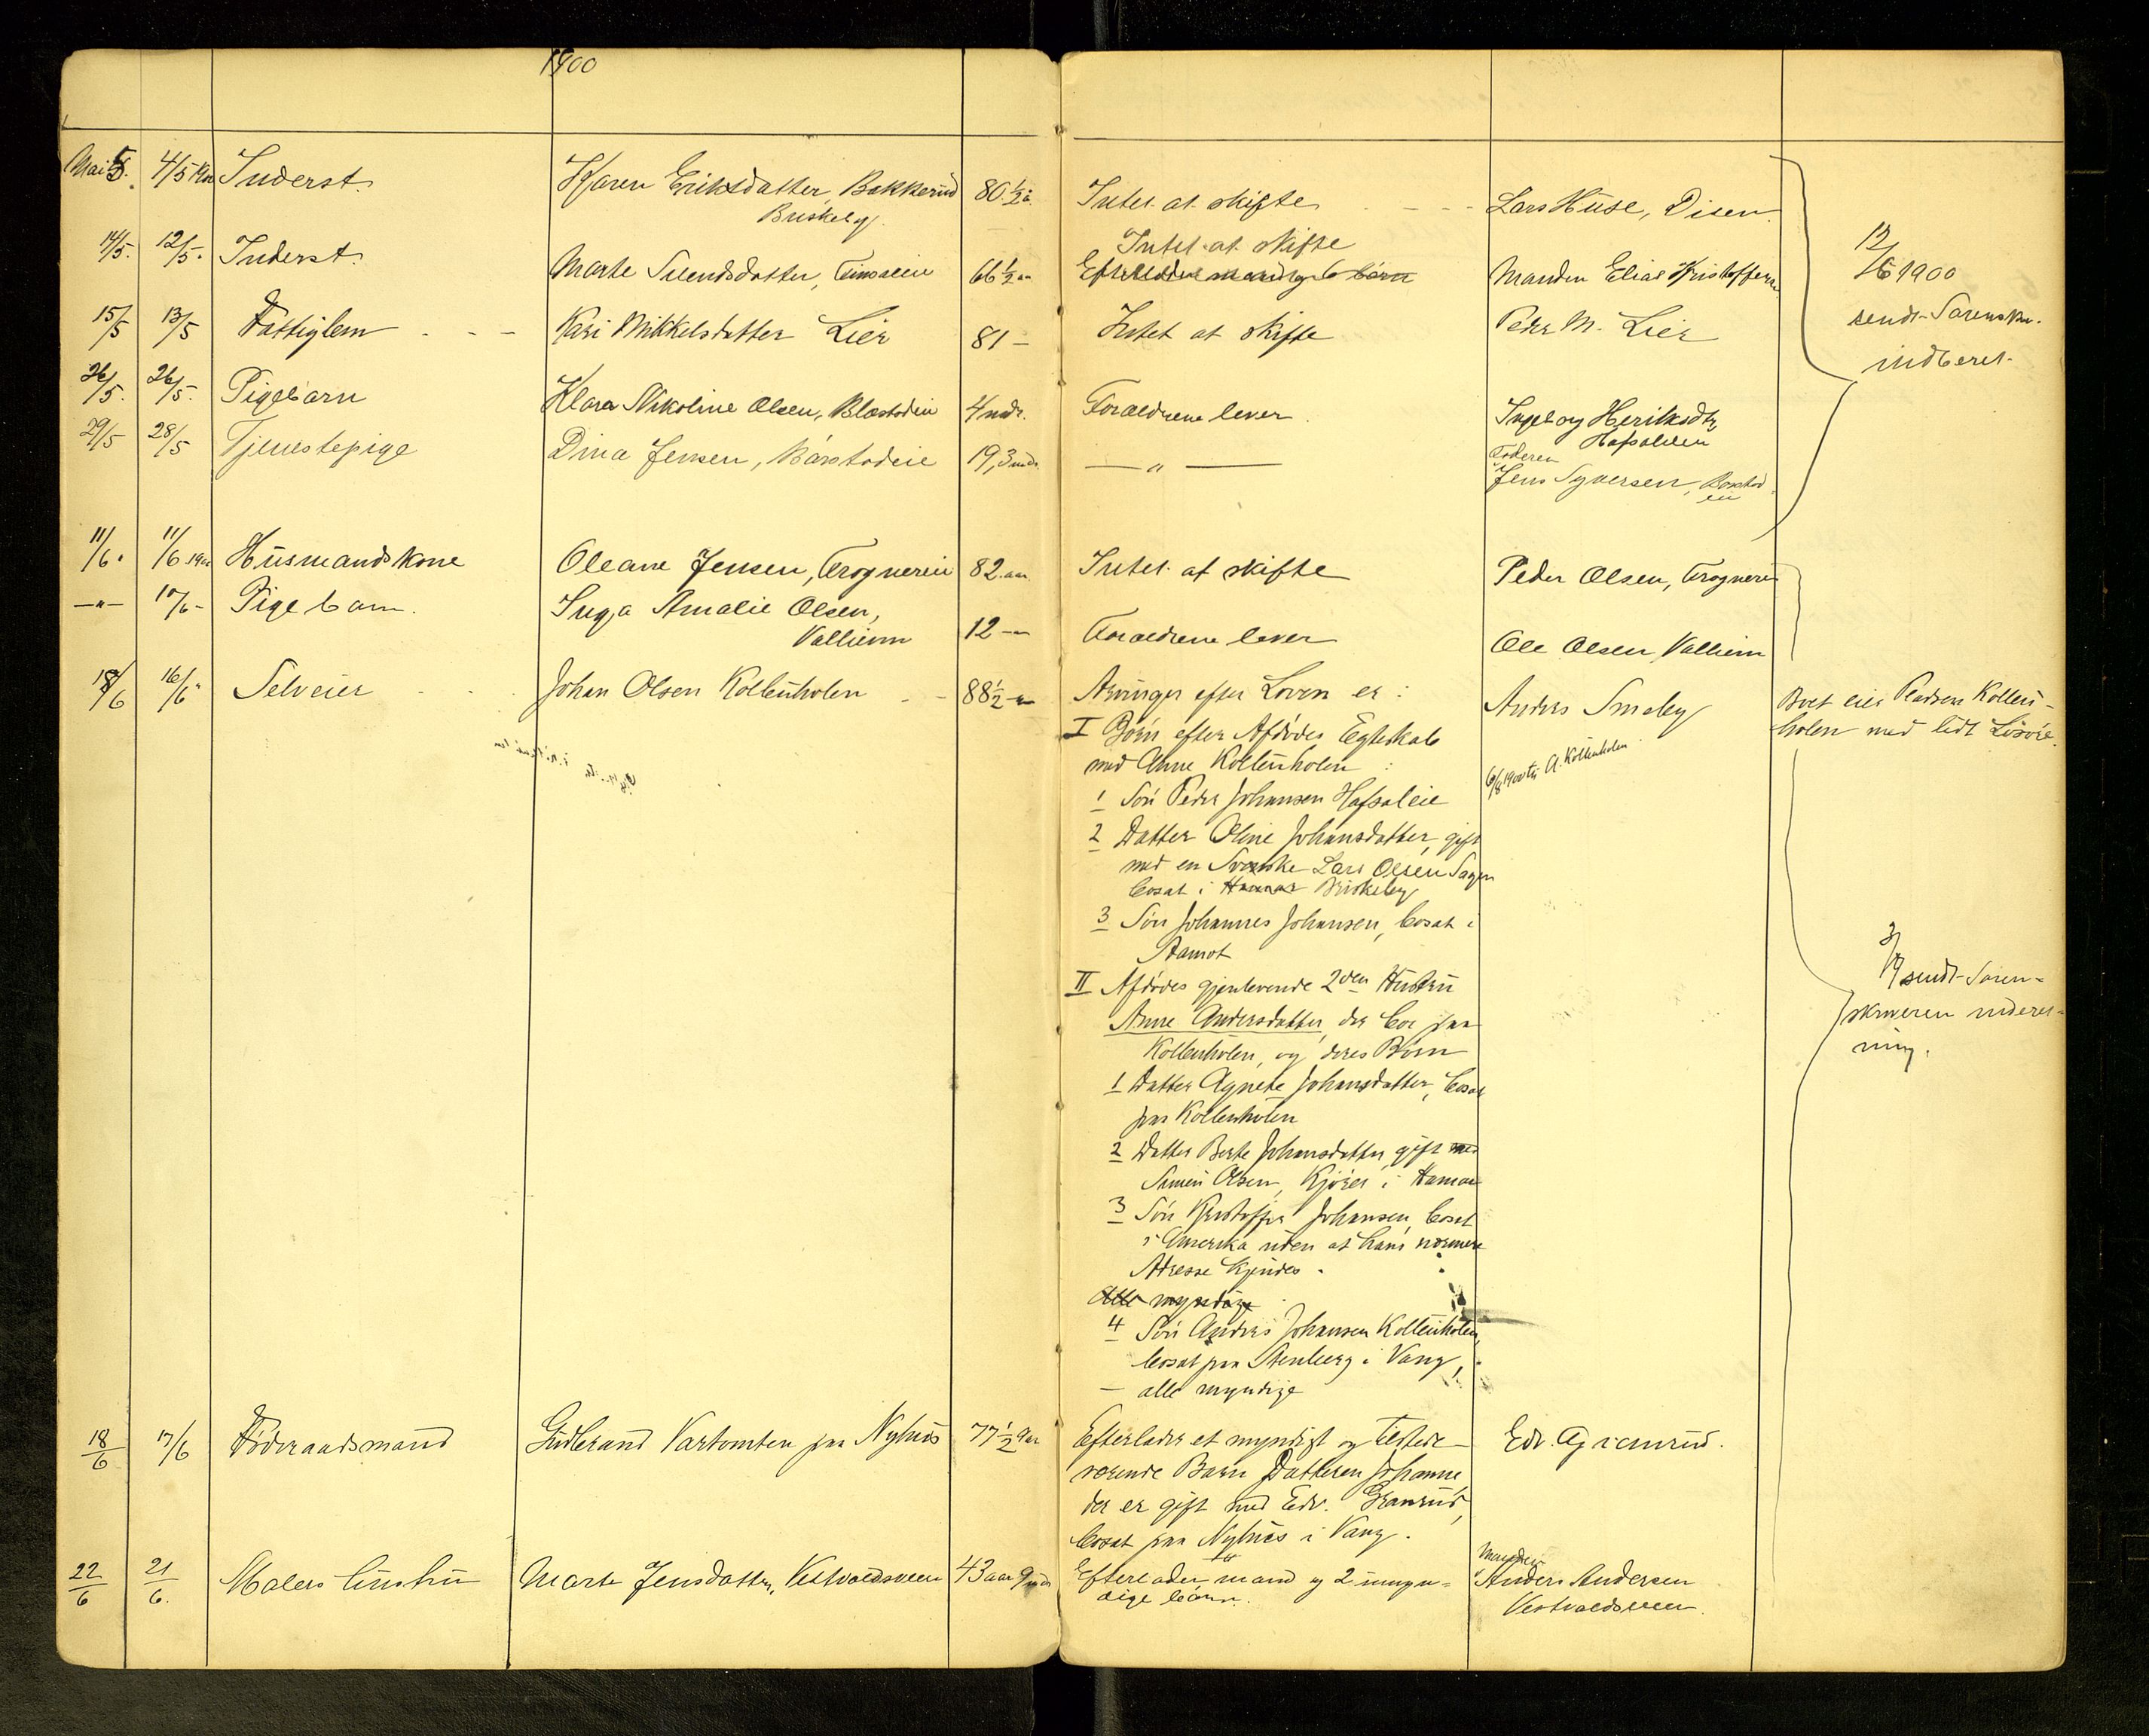 1900
Mai 5. 4/5 1900 Inderst. Karen Eriksdatter, Bakkerud 80 1/2 a. Intet at skifte Lars Huse, Disen
Briskeby.
Intet at skifte
14/5. 12/5. Inderst. Marte Svendsdatter, 66 1/2 aa Efterlader mand og 6 børn Manden Elias Kristoffers.
15/5 13/5 Fattiglem Kari Mikkelsdatter Lier 81 — Intet at skifte Peder M. Lier
12/6 1900
sendt Sorenskr.
indberet.
26/5. 26/5. Pigebarn Klara Nikoline Olsen, 4 mdr. Forældrene lever Ingeborg
29/5 28/5 Tjenestepige Dina Jensen, Baarstadeie 19, 3 mdr. — " — Faderen
Jens Syversen, Baarstad-
eie
11/6. 11/6 1900 Husmandskone Oleane Jensen, Frognereie 82 aar Intet at skifte Peder Olsen, Frognereie
— " — 10/6 - Pigebarn. Inga Amalie Olsen,
Valliemn 12 — Forældrene lever Ole Olsen Valliemn
18/6 16/6 Selveier Johan Olsen Kollenholen 88 1/2 — Arvinger efter Loven er: Anders Smeby Boet eier Pladsen Kollen-
holen med lidt Løsøre.
I Børn efter Afdødes Egteskab
med Anne Kollenholen:
6/8 1900 A. Kollenholen
1 Søn Peder Johansen Hafsaleie
2 Datter Oline Johansdatter, gift
med en Svenske Lars Olsen Sagen
bosat i Hamar Briskeby
3 Søn Johannes Johansen, bosat i
Aamot
II Afdødes gjenlevende 2den Hustru
Anne Andersdatter, der bor paa
Kollenholen, og deres Børn
sendt Soren-
skriveren inderet-
ning.
1 Datter Agnete Johansdatter, bosat
paa Kollenholen
2 Datter Berte Johansdatter, gift med
Simen Olsen, Kjører i Hamar
3 Søn Kristoffer Johansen, bosat
i Amerika uden at hans nærmere
Adresse kjendes.
Alle myndige
4 Søn Anders Johansen Kollenholen,
bosat paa Stenberg i Vang,
— alle myndige
18/6 17/6 Føderaadsmand Gudbrand Vartomten paa Nyhus 77 1/2 aar Efterlader et myndigt og tilstede- Edv. Granrud.
værende Barn Datteren Johanne
der er gift med Edv. Granrud,
bosat paa Nyhus i Vang.
22/6 21/6. Malers hustru Marte Jensdatter, Vestvoldsveen 43 aar 9 mdr Efterlader mand og 2 umyn-
dige børn. Manden
Anders Andersen
Vestvoldsveen